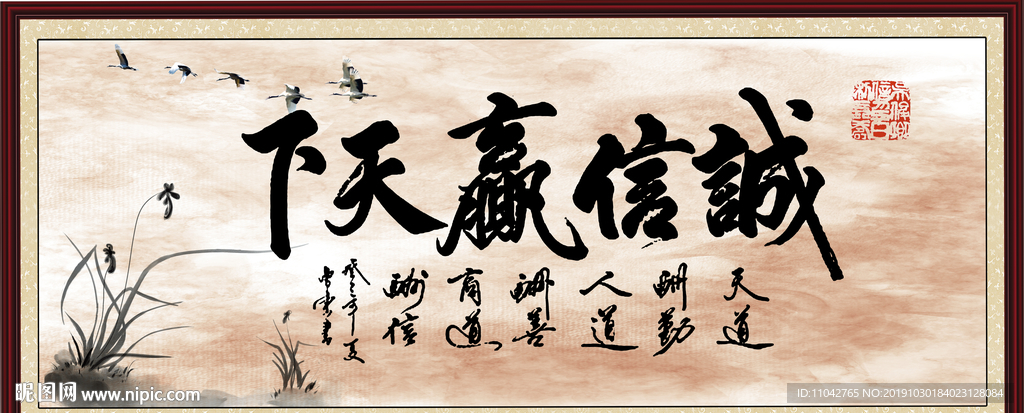 誠信贏天下
天道
酬勤
人道
酬善
商道
酬信
年夏
昵图网 www.nipic.com
ID:11042765 NO:20191030184023128084